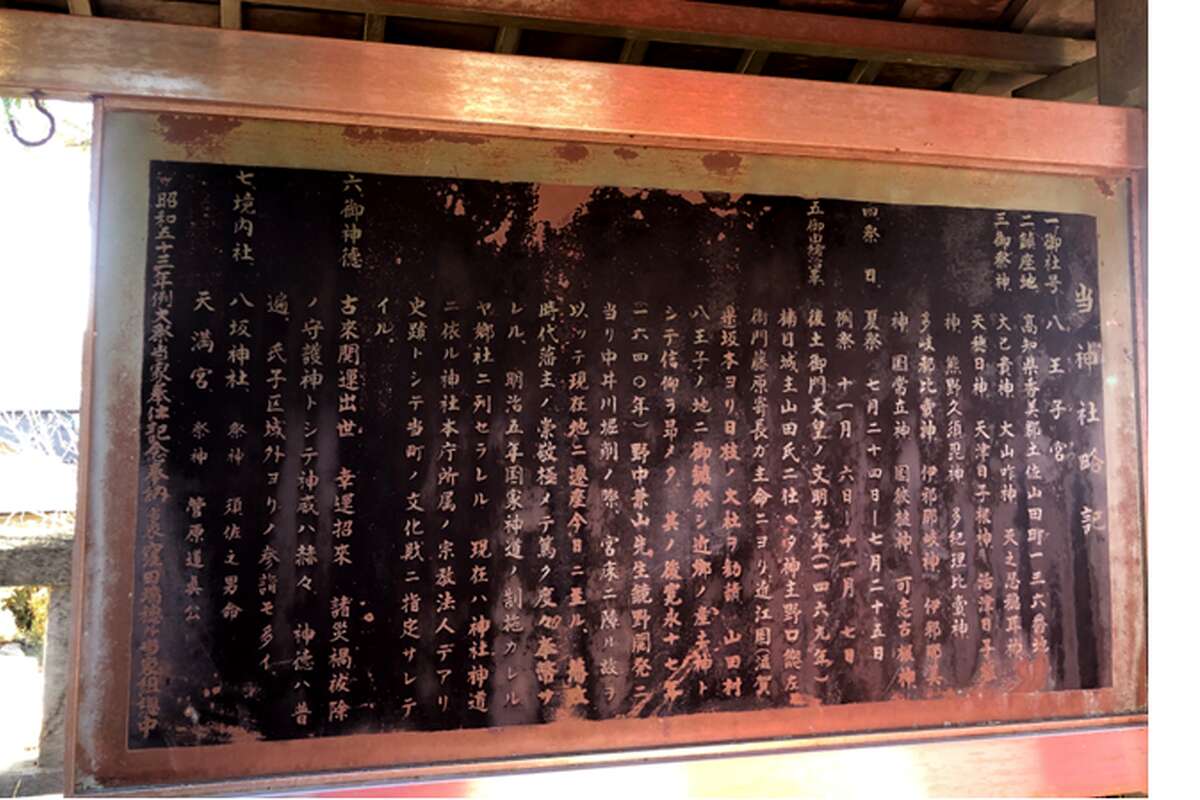 当神社略記
一御社号 八王子宮
二鎮座地 高知県香美郡土佐山田町一三六番地
三御祭神 大己貴神 大山咋神 天之忍穂耳神
天穂日神 天津日子根神 活津日子根
神 熊野久須毘神 多紀理比賣神
多岐都比賣神 伊邪那岐神 伊邪那美
神 国常立神 国狭槌神 可志古根神
四祭日 夏祭 七月二十四日ー七月二十五日
例祭 十一月 六日ー十一月 七日
五御由緒 後土御門天皇ノ文明元年(一四六九年)
楠目城主山田氏ニ仕ヘタ神主野口能左
衛門藤原寄長ガ主命ニヨリ近江国(滋賀
県坂本ヨリ日枝ノ大社ヲ勧請 山田村
八王子ノ地ニ御鎮祭シ近郷ノ産土神ト
シテ信仰ヲ昂メタ 其ノ後寛永十七年
(一六四〇年)野中兼山先生鏡野開発ニ
当リ中井川堀削ノ際 宮床ニ障ル故ヲ
以ッテ現在地ニ遷座今日ニ至ル 藩政
時代藩主ノ崇敬極メテ篤ク度々奉幣サ
レル 明治五年国家神道ノ制施カレル
ヤ郷社ニ列セラレル 現在ハ神社神道
ニ依ル神社本庁所属ノ宗教法人デアリ
史蹟トシテ当町ノ文化財ニ指定サレテ
イル
六御神徳 古来開運出世 幸運招来 諸災禍祓除
ノ守護神トシテ神威ハ赫々 神徳ハ普
遍 氏子区域外ヨリノ参詣モ多イ
七境内社 八坂神社 祭神 須佐之男命
天満宮 祭神 菅原道真公
昭和五十三年例大祭当家奉仕記念奉納